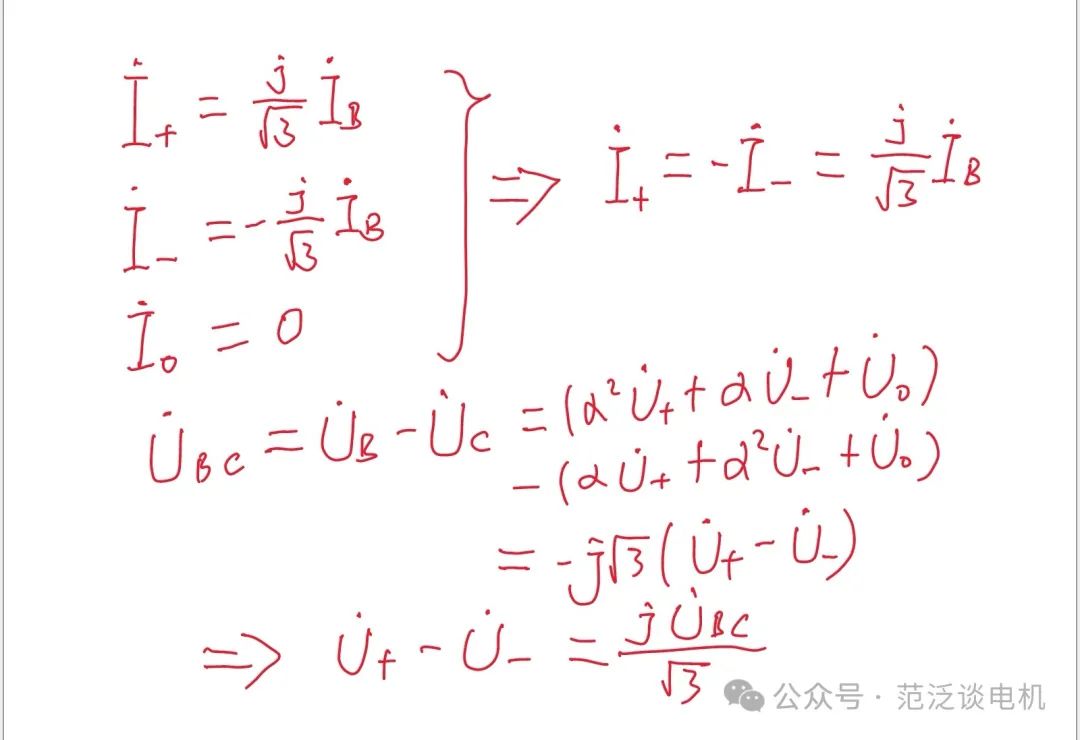 İ₊ = j/√3 İ_B
İ₋ = -j/√3 İ_B
İ₀ = 0
⇒ İ₊ = -İ₋ = j/√3 İ_B
U̇_BC = U̇_B - U̇_C = (α²U̇₊ + αU̇₋ + U̇₀)
- (αU̇₊ + α²U̇₋ + U̇₀)
= -j√3(U̇₊ - U̇₋)
⇒ U̇₊ - U̇₋ = jU̇_BC/√3
公众号 · 范泛谈电机